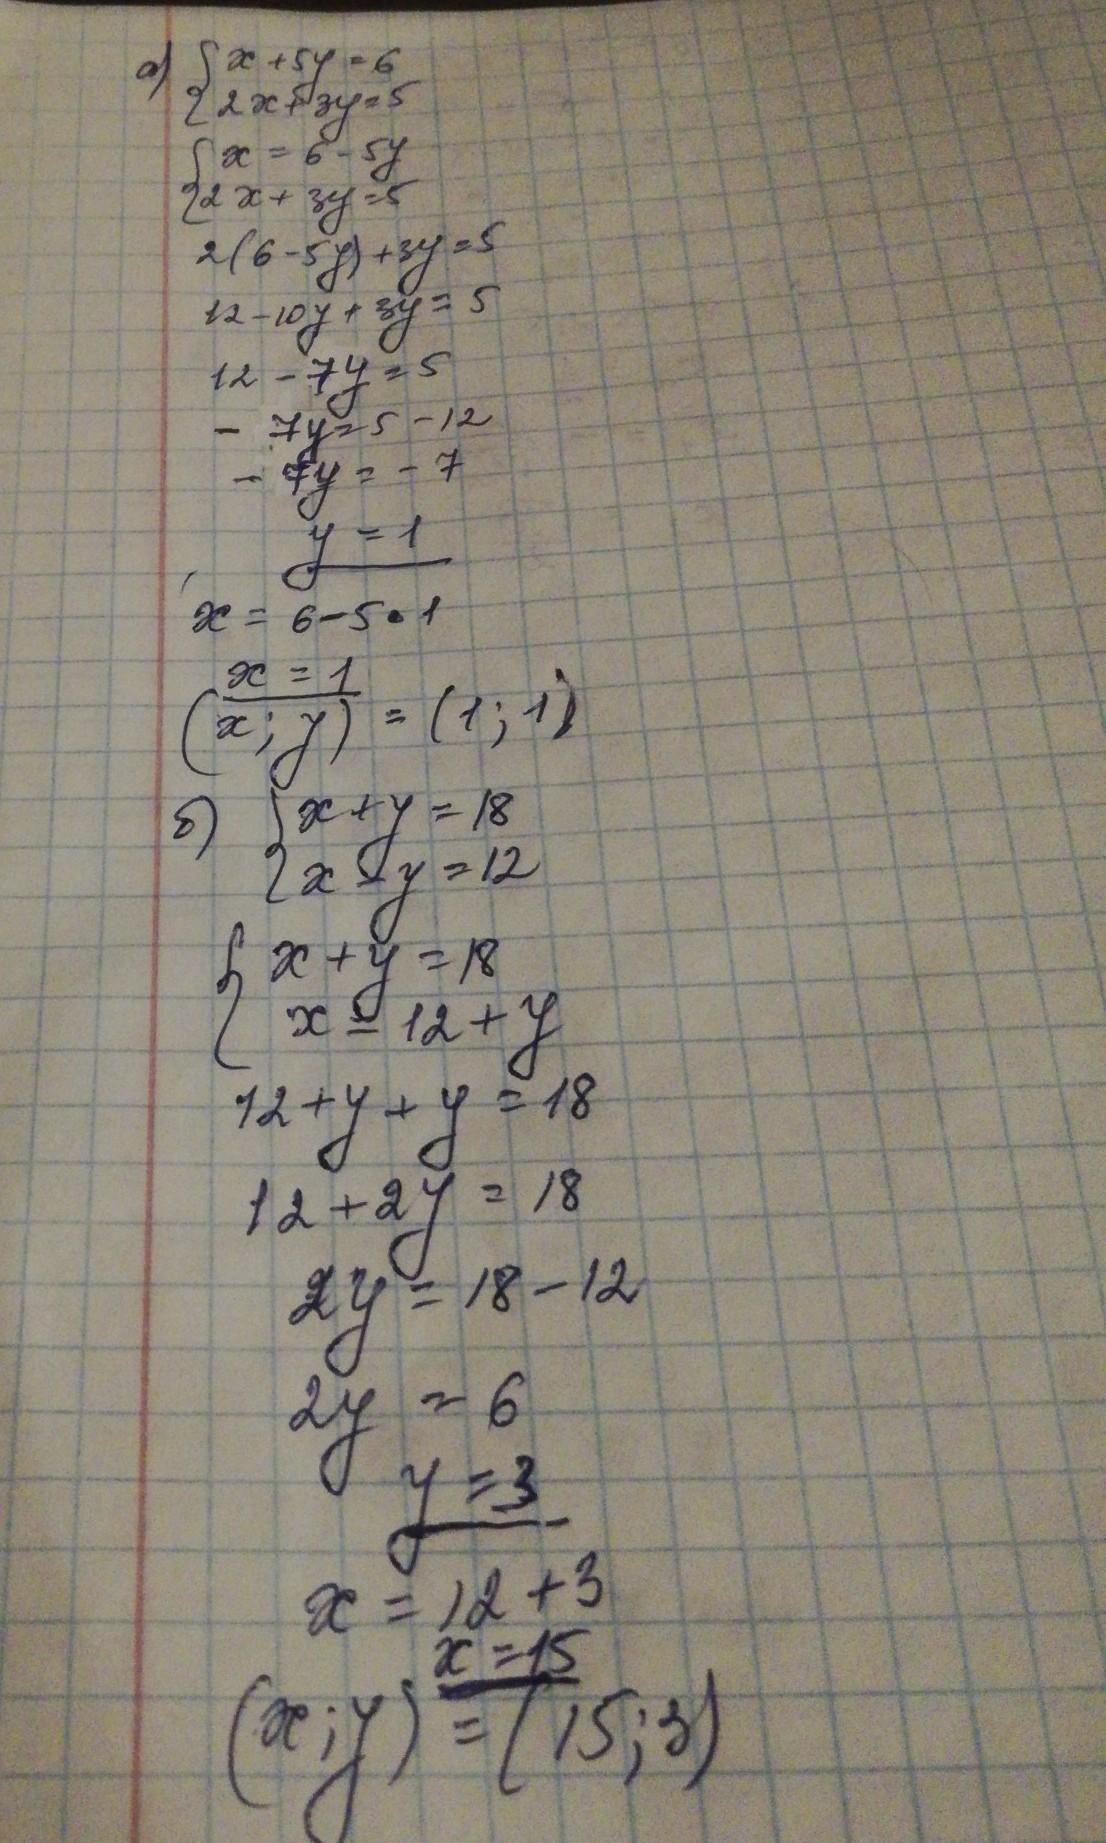 а) { x + 5y = 6
{ 2x + 3y = 5
{ x = 6 - 5y
{ 2x + 3y = 5
2(6 - 5y) + 3y = 5
12 - 10y + 3y = 5
12 - 7y = 5
- 7y = 5 - 12
- 7y = - 7
y = 1
x = 6 - 5 • 1
x = 1
(x; y) = (1; 1)
б) { x + y = 18
{ x - y = 12
{ x + y = 18
{ x = 12 + y
12 + y + y = 18
12 + 2y = 18
2y = 18 - 12
2y = 6
y = 3
x = 12 + 3
x = 15
(x; y) = (15; 3)